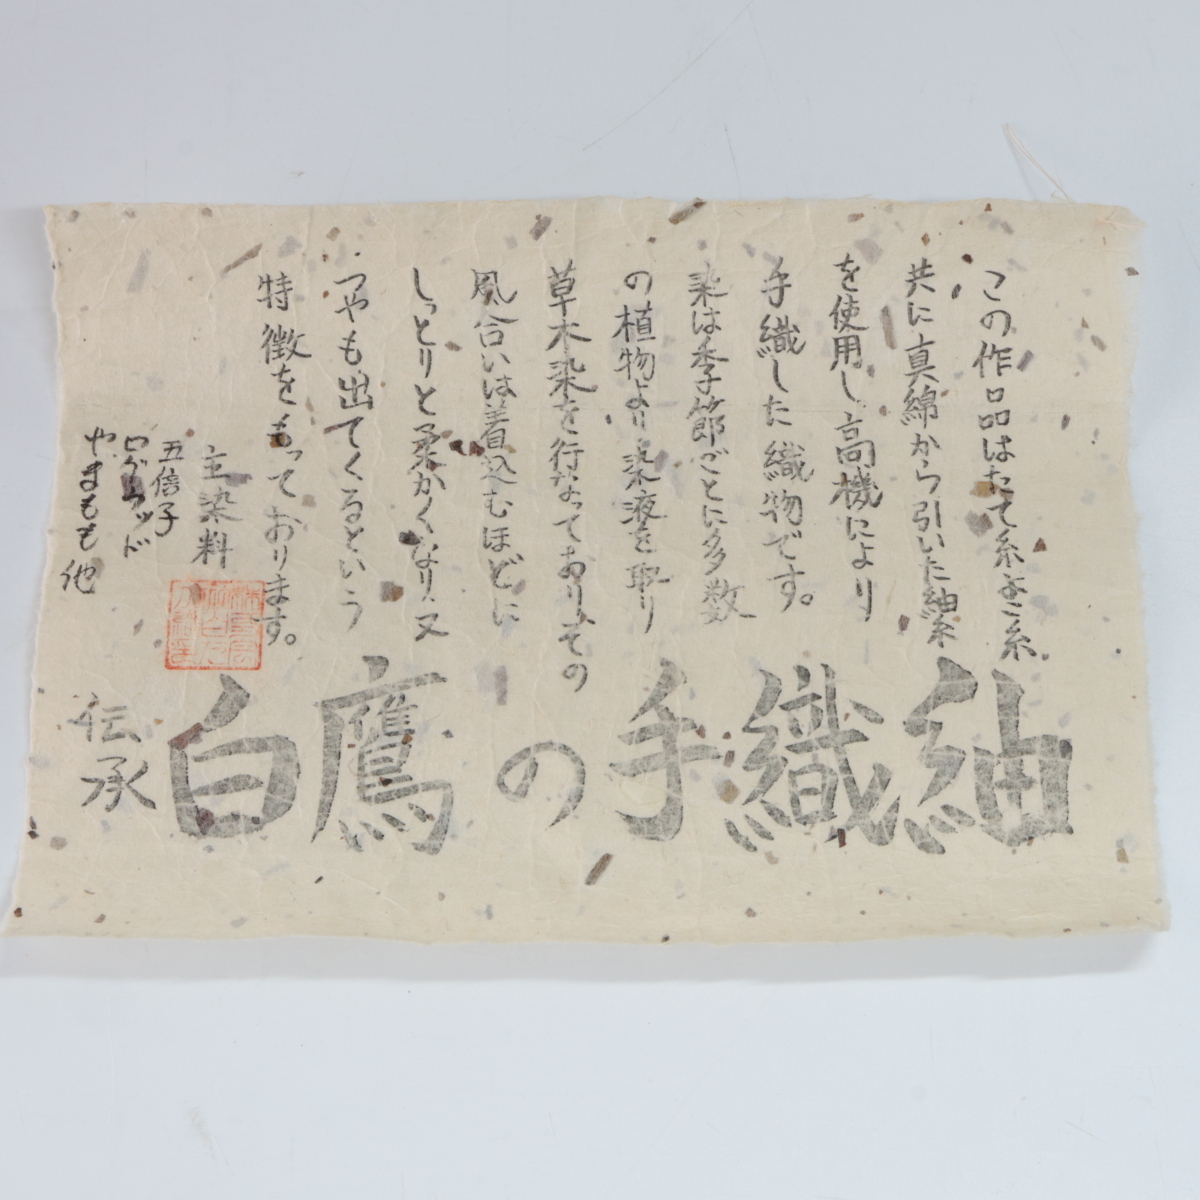 この作品はたて糸よこ糸
共に真綿から引いた紬糸
を使用し高機により
手織した織物です。
染は季節ごとに多数
の植物より染液を取り
草木染を行なっておりその
風合いは着込むほどに
しっとりと柔かくなり又
つやも出てくるという
特徴をもっております。
主染料
五倍子
ログウッド
やまもも他
伝承
白鷹の手織紬